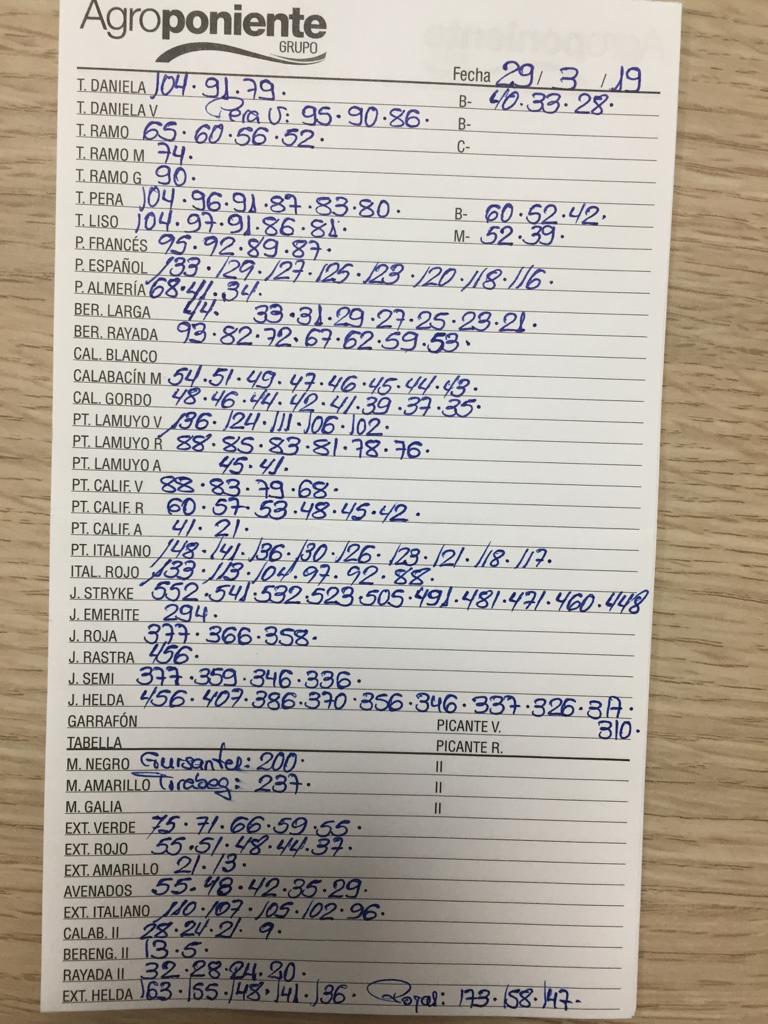 Agroponiente
GRUPO
Fecha 29/ 3 /19
T. DANIELA 104·91·79· B- 40·33·28·
T. DANIELA V Pera V: 95·90·86· B-
T. RAMO 65·60·56·52· C-
T. RAMO M 74·
T. RAMO G 90·
T. PERA 104·96·91·87·83·80· B- 60·52·42·
T. LISO 104·97·91·86·81· M- 52·39·
P. FRANCÉS 95·92·89·87·
P. ESPAÑOL 133·129·127·125·123·120·118·116·
P. ALMERÍA 68·41·34·
BER. LARGA 44· 33·31·29·27·25·23·21·
BER. RAYADA 93·82·72·67·62·59·53·
CAL. BLANCO
CALABACÍN M 54·51·49·47·46·45·44·43·
CAL. GORDO 48·46·44·42·41·39·37·35·
PT. LAMUYO V 136·124·111·106·102·
PT. LAMUYO R 88·85·83·81·78·76·
PT. LAMUYO A 45·41·
PT. CALIF. V 88·83·79·68·
PT. CALIF. R 60·57·53·48·45·42·
PT. CALIF. A 41·21·
PT. ITALIANO 148·141·136·130·126·123·121·118·117·
ITAL. ROJO 133·113·104·97·92·88·
J. STRYKE 552·541·532·523·505·491·481·471·460·448
J. EMERITE 294·
J. ROJA 377·366·358·
J. RASTRA 456·
J. SEMI 377·359·346·336·
J. HELDA 456·407·386·370·356·346·337·326·317·
GARRAFÓN PICANTE V. 310·
TABELLA PICANTE R.
M. NEGRO 200· II
M. AMARILLO 237· II
M. GALIA II
EXT. VERDE 75·71·66·59·55·
EXT. ROJO 55·51·48·44·37·
EXT. AMARILLO 21·13·
AVENADOS 55·48·42·35·29·
EXT. ITALIANO 110·107·105·102·96·
CALAB. II 28·24·21· 9·
BERENG. II 13·5·
RAYADA II 32·28·24·20·
EXT. HELDA 163·155·148·141·136· Rojas: 173·158·147·